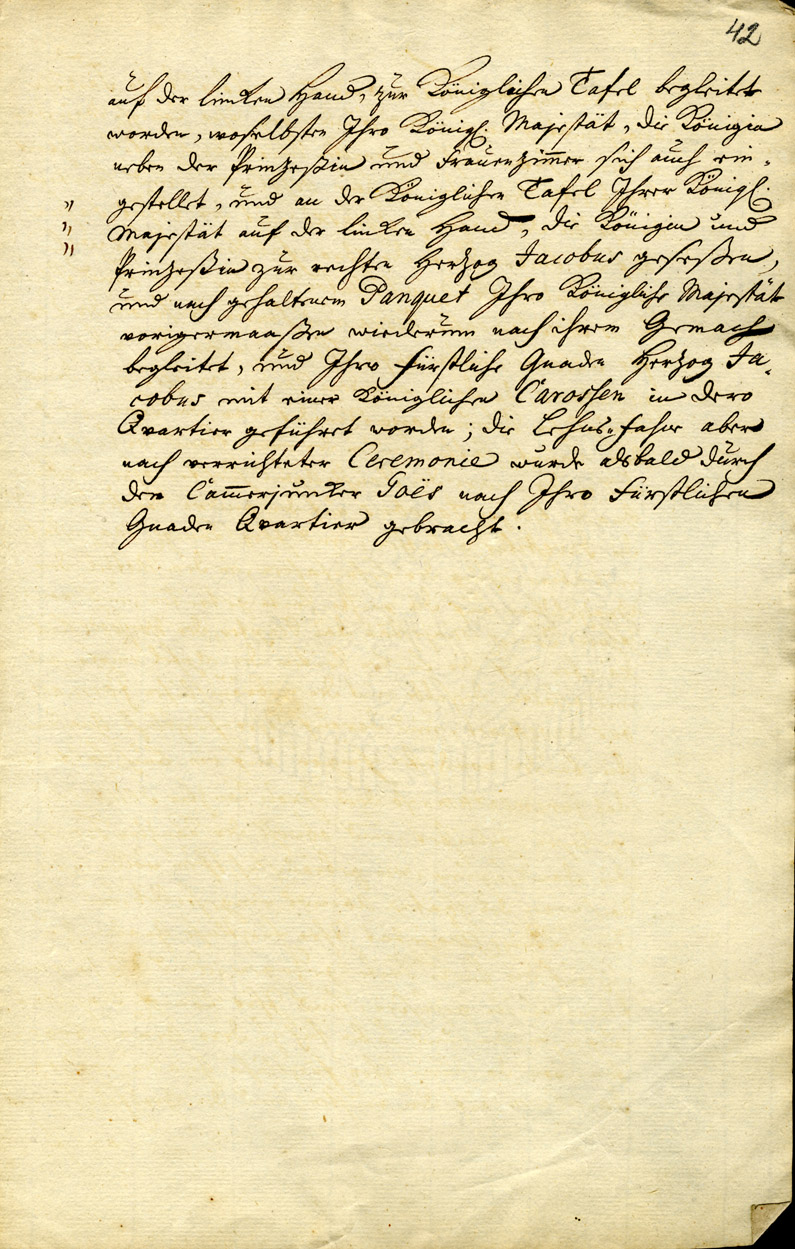 42
auf der lincken Hand, zur Königlichen Tafel begleitet
worden, woselbsten Ihro Königl. Majestät, die Königin
neben der Prinzeßin und Frauenzimmer sich auch ein-
gestellet, und an der Königlichen Tafel Ihrer Königl.
Majestät auf der lincken Hand, die Königin und
Prinzeßin zur rechten Hertzog Jacobus geseßen,
und nach gehaltenem Panquet Ihro Königliche Majestät
vorigermaaßen wiederum nach ihrem Gemach
begleitet, und Ihro Fürstliche Gnaden Hertzog Ja-
cobus mit einer Königlichen Carossen in dero
Qvartier geführet worden; die Lehns-Fahne aber
nach verrichteter Ceremonie wurde alsbald durch
den Cammerjuncker Goës nach Ihro Fürstlichen
Gnaden Qvartier gebracht.